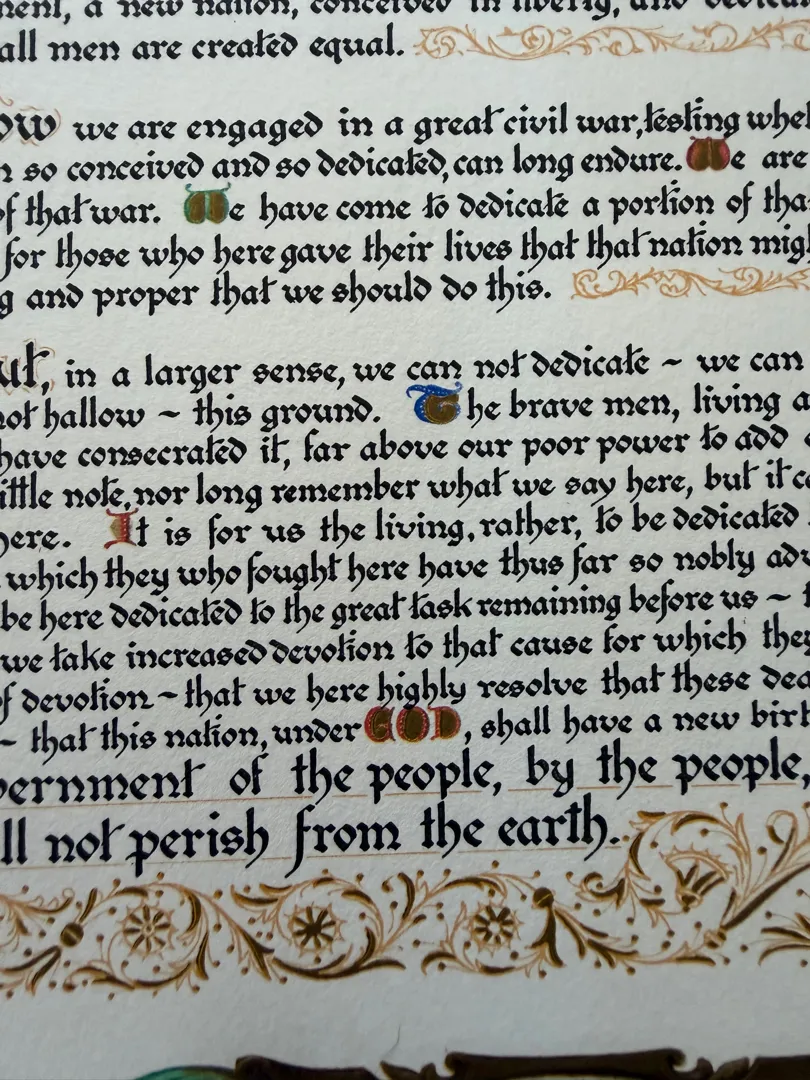 a new nation, conceived in liberty, and
all men are created equal.
we are engaged in a great civil war, testing
so conceived and so dedicated, can long endure. We are
of that war. We have come to dedicate a portion of
for those who here gave their lives that that nation
and proper that we should do this.
in a larger sense, we can not dedicate ~ we can
hallow ~ this ground. The brave men, living
have consecrated it, far above our poor power to add
note, nor long remember what we say here, but it
It is for us the living, rather, to be dedicated
which they who fought here have thus far so nobly
be here dedicated to the great task remaining before us ~
we take increased devotion to that cause for which
of devotion ~ that we here highly resolve that these
~ that this nation, under GOD, shall have a new
of the people, by the people,
not perish from the earth.